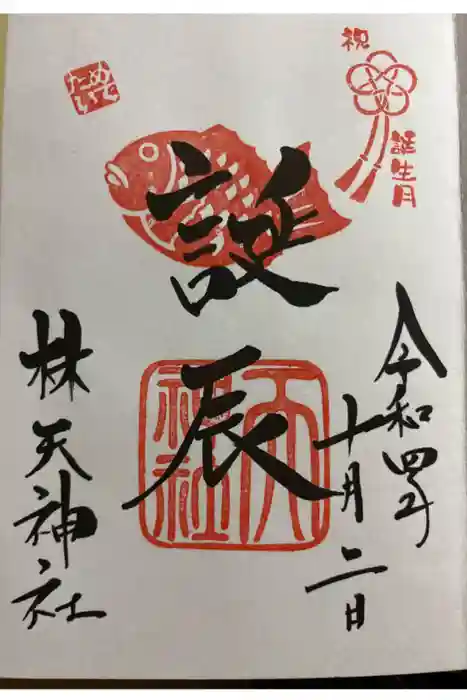 祝
誕生月
めで
たい
令和四年
十月二日
誕辰
天神社
林天神社